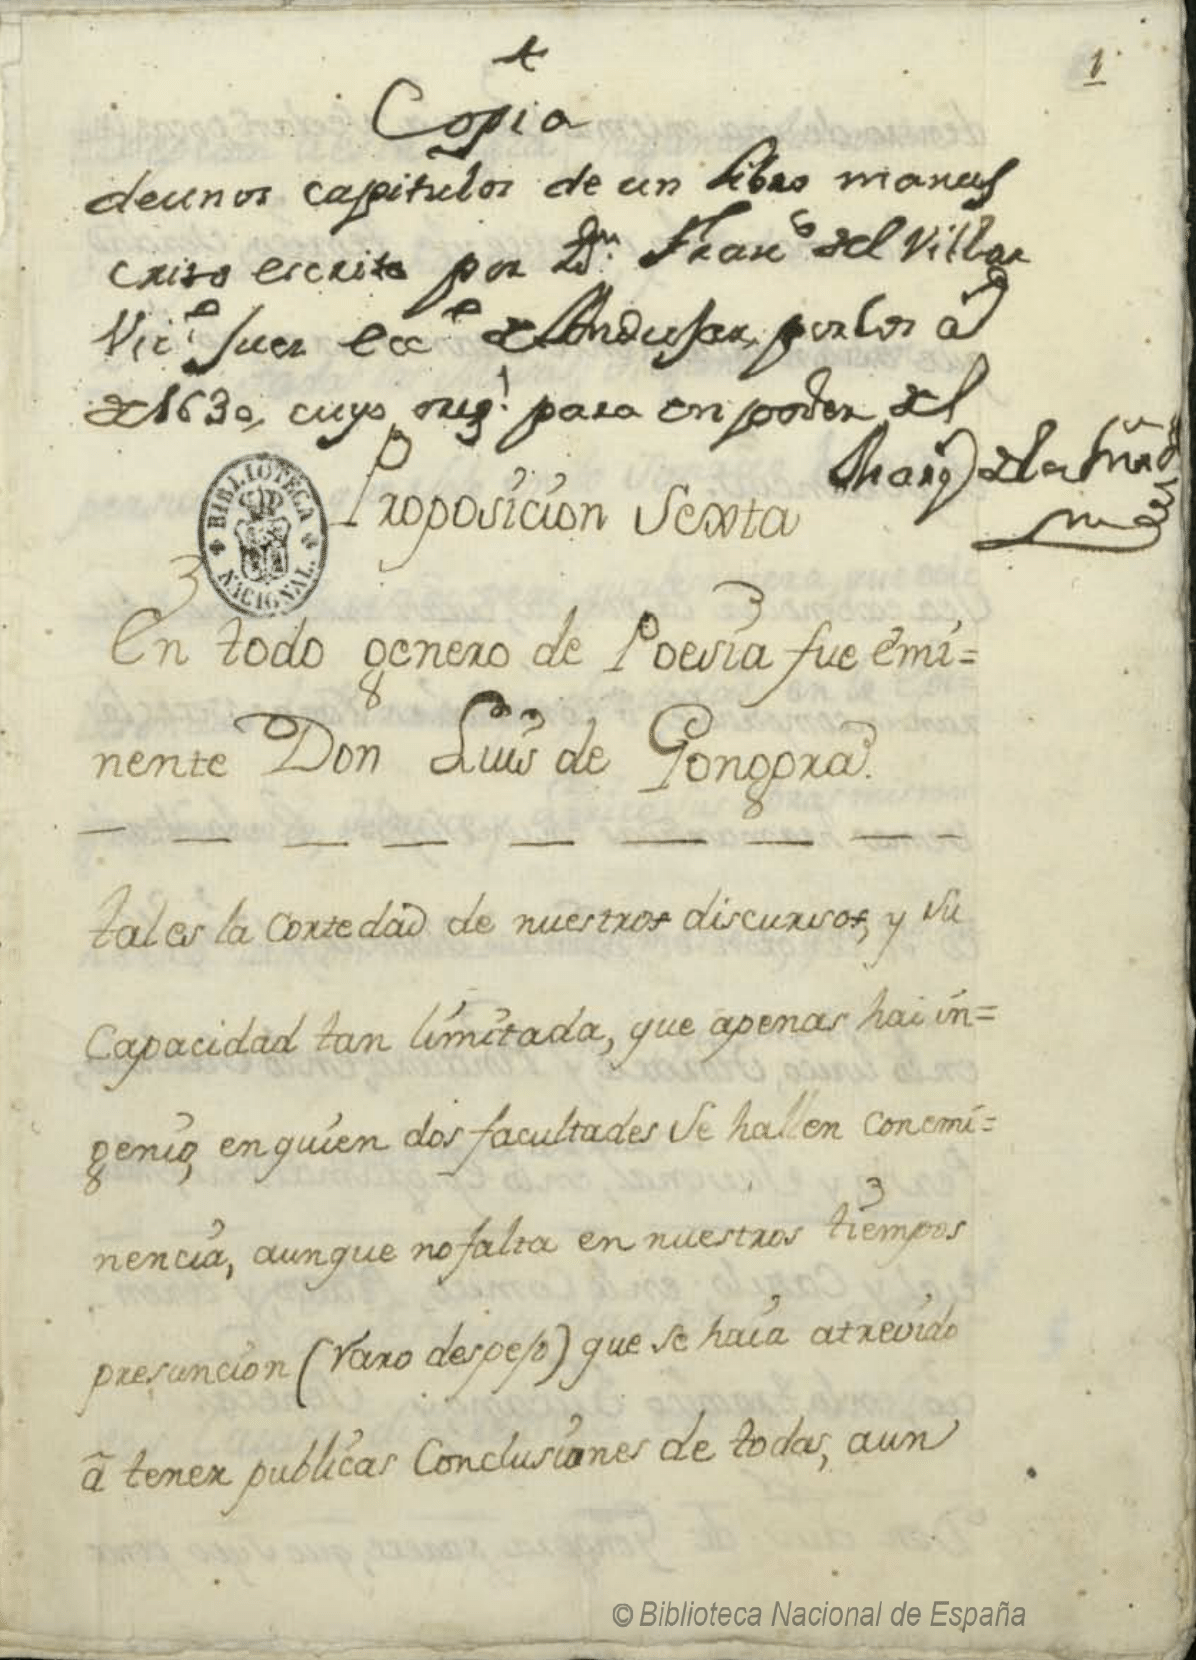 1
Copia
de unos capitulos de un libro manus
crito escrito por Dn. Franco del Villar
Vice. Juez ecce de Andujar, por los as
de 1630, cuyo origl. para en poder del
Marqs de la
Proposicion Sexta
En todo genero de Poesia fue emi=
nente Don Luis de Gongora.
tal es la Cortedad de nuestros discursos, y su
Capacidad tan limitada, que apenas hai in=
genio, en quien dos facultades se hallen con emi=
nencia, aunque no falta en nuestros tiempos
presuncion (raro despejo) que se haia atrevido
â tener publicas Conclusiones de todas, aun
BIBLIOTECA NACIONAL.
© Biblioteca Nacional de España